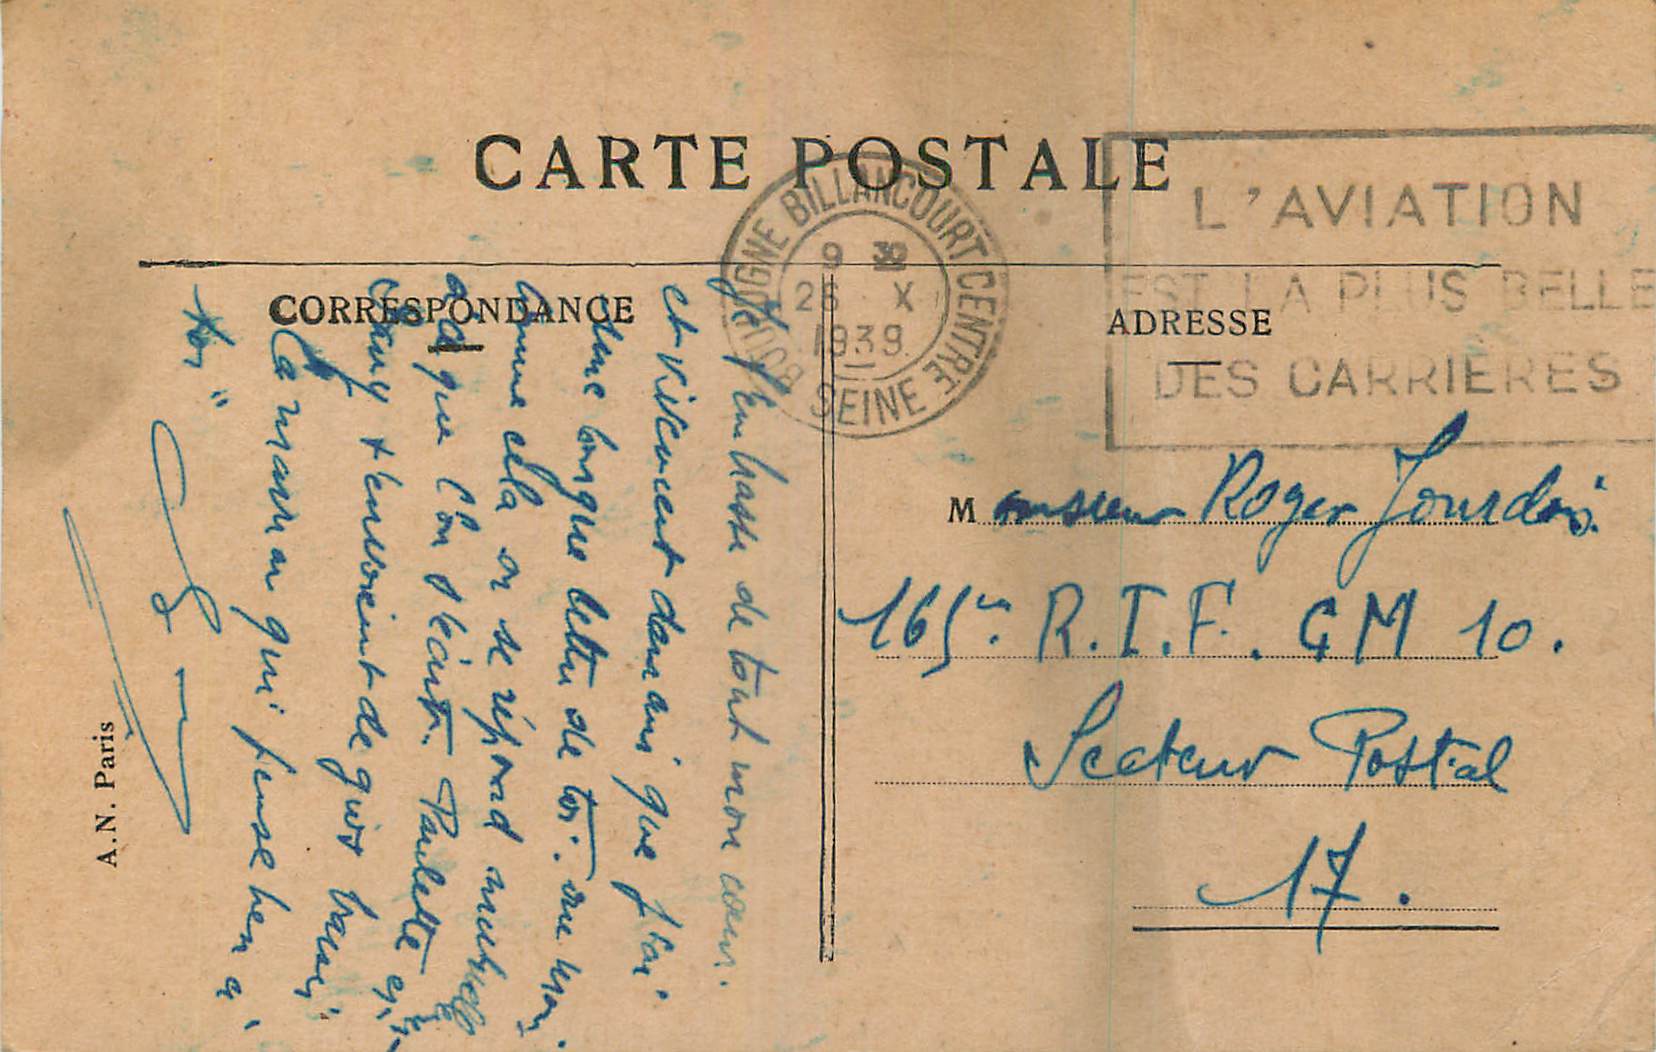 CARTE POSTALE
BOULOGNE BILLANCOURT CENTRE
9 30
26 X
1939
SEINE
L'AVIATION
EST LA PLUS BELLE
DES CARRIÈRES
CORRESPONDANCE
ADRESSE
Je t'embrasse de tout mon cœur.
et vivement demain que j'ai
une longue lettre de toi. au moins
comme cela on se répond
à ce que l'on s'écrit. Paulette et
t'envoient de gros baisers
Ta maman qui pense bien à
toi "
Monsieur Roger Jourdois
165e R.I.F. CM 10.
Secteur Postal
17.
A.N. Paris